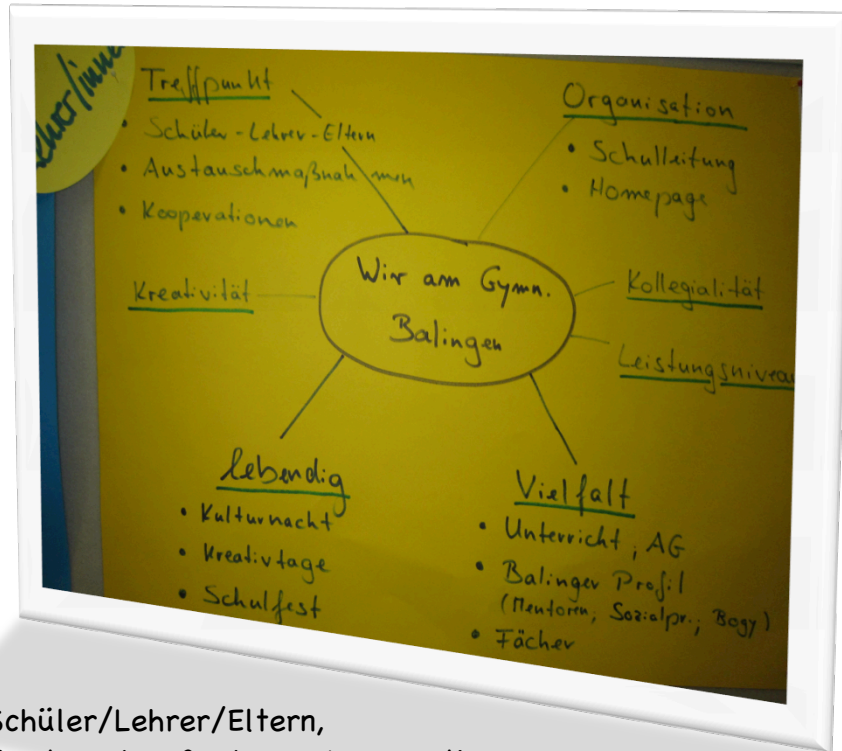 Lehrer/inne
Treffpunkt
• Schüler-Lehrer-Eltern
• Austauschmaßnahmen
• Kooperationen
Organisation
• Schulleitung
• Homepage
Kreativität
Wir am Gymn.
Balingen
Kollegialität
Leistungsniveau
lebendig
• Kulturnacht
• Kreativtage
• Schulfest
Vielfalt
• Unterricht, AG
• Balinger Profil
(Mentoren, Sozialpr., Bogy)
• Fächer
Schüler/Lehrer/Eltern,